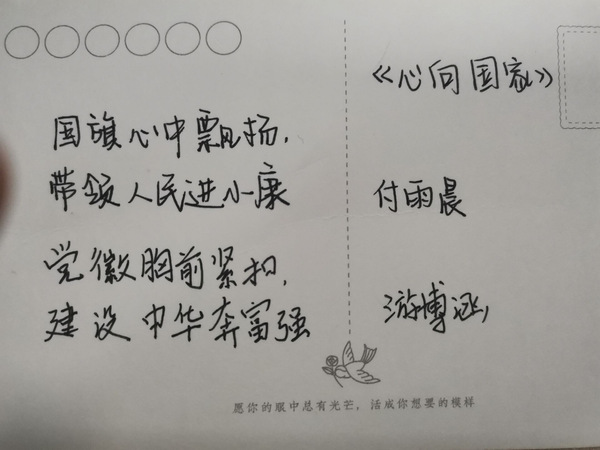 《心向国家》
国旗心中飘扬,
带领人民进小康
党徽胸前紧扣,
建设中华奔富强
付雨晨
游博涵
愿你的眼中总有光芒，活成你想要的模样